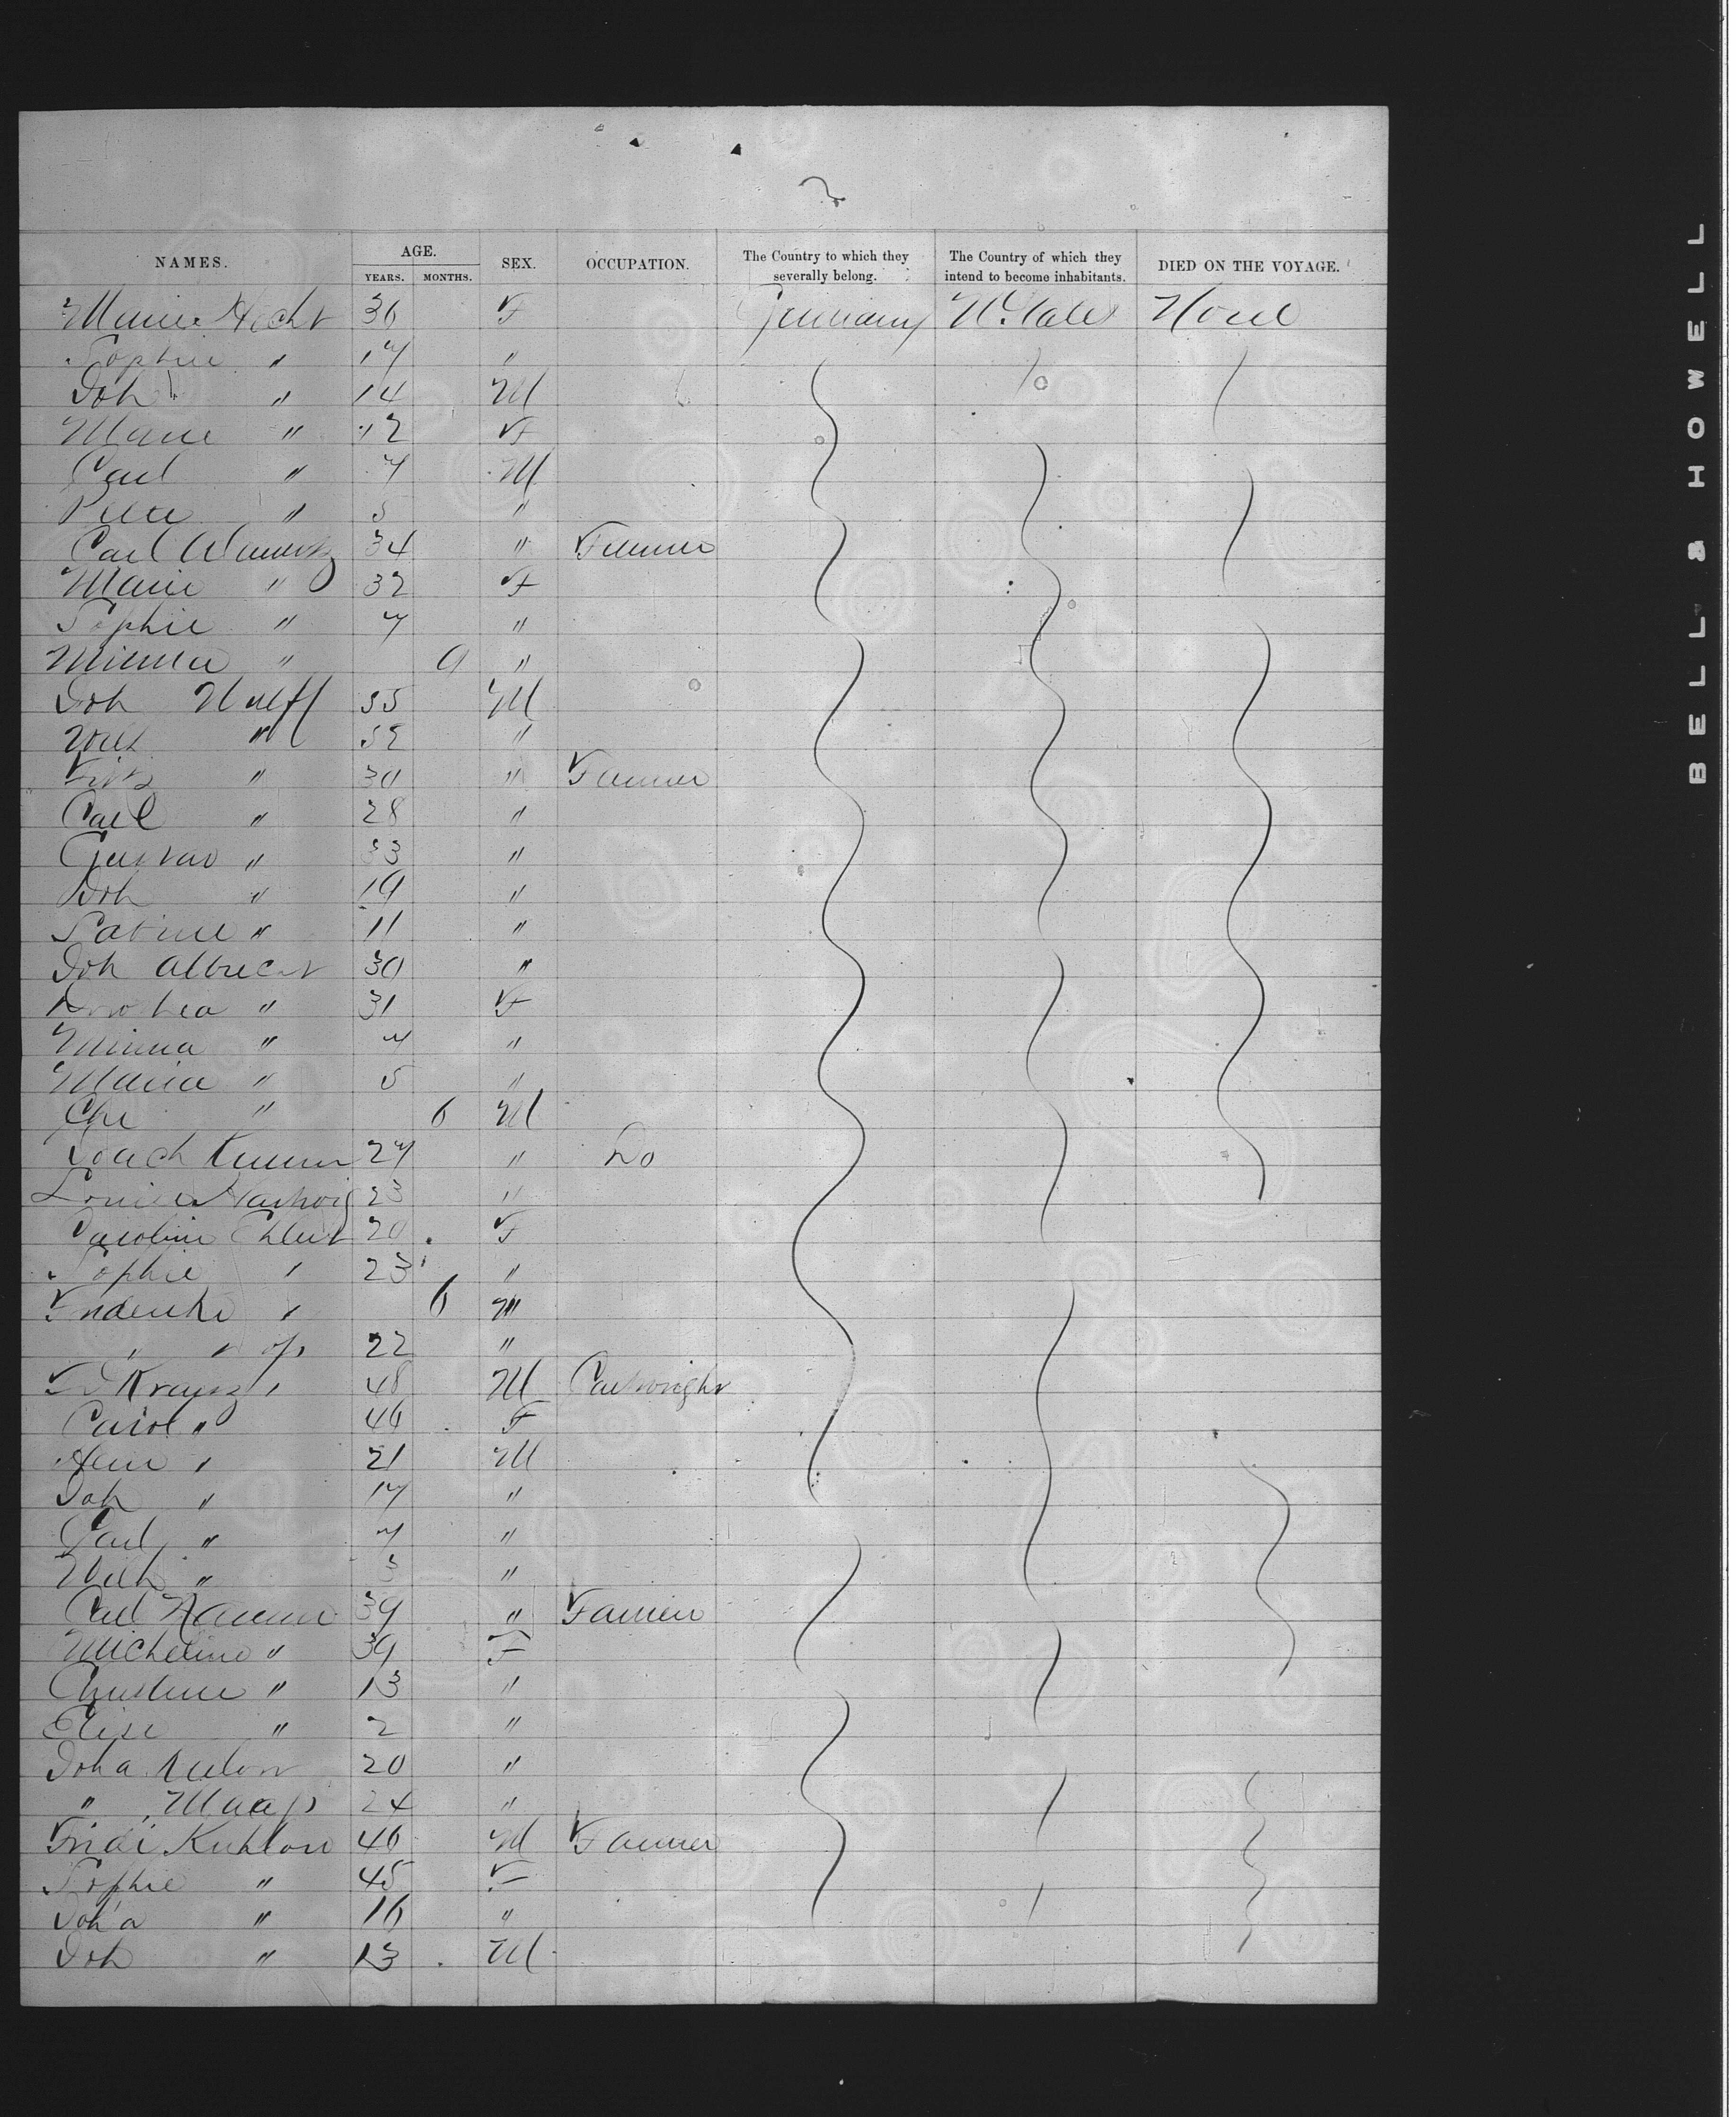 NAMES. AGE. SEX. OCCUPATION. The Country to which they severally belong. The Country of which they intend to become inhabitants. DIED ON THE VOYAGE.
YEARS. MONTHS.
Marie Hecht 36 F Germany U. States None
Sophie " 17 "
Joh " 14 M
Marie " 12 F
Carl " 7 M
Peter " 5 "
Carl 34 " Farmer
Marie " 32 F
Sophie " 7 "
Minna " 9 "
Joh Wulff 55 M
Wilh " 52 "
Fritz " 30 " Farmer
Carl " 28 "
Gustav " 33 "
Joh " 19 "
Sabine " 11 "
Joh Albrecht 30 "
Dorothea " 31 F
Minna " 7 "
Maria " 5 "
Chr " 6 M
Joach 27 " Do
Louise Hartwig 23 "
Caroline Ehlert 20 F
Sophie " 23 "
Friderike " 6 "
" " 22 "
Kranz 48 M Cartwright
Carol " 46 F
Heinr " 21 M
Joh " 17 "
Carl " 7 "
Wilh " 3 "
Carl 39 " Farmer
Micheline " 39 F
Christine " 13 "
Elise " 2 "
Joha 20 "
" Maass 24 "
Fridr Kuhlow 46 M Farmer
Sophie " 45 F
Joh'a " 16 "
Joh " 13 M
BELL & HOWELL